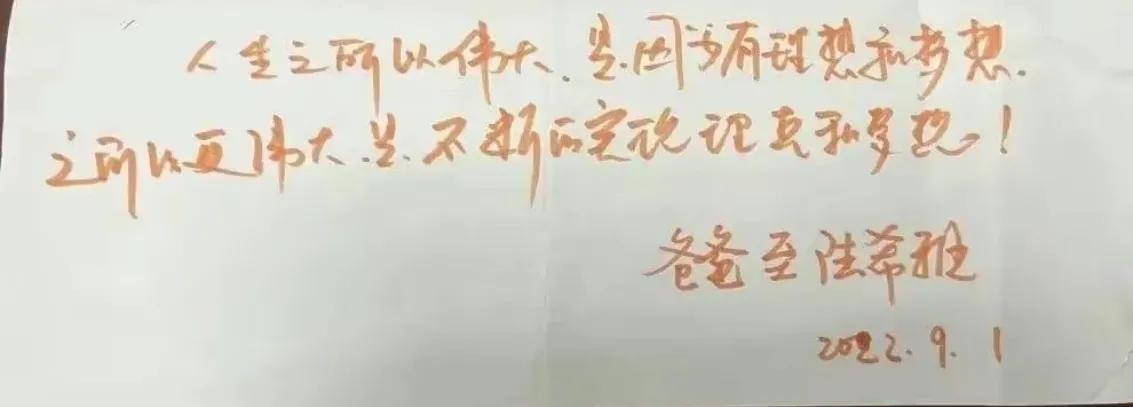 人生之所以伟大.是因为有理想和梦想.
之所以更伟大.是.不断的实现理想和梦想!
爸爸至陆希雅
2022.9.1